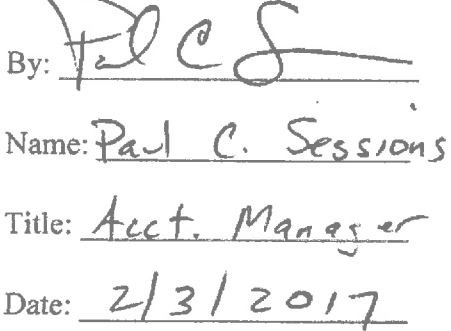 By: Paul C S
Name: Paul C. Sessions
Title: Acct. Manager
Date: 2/3/2017